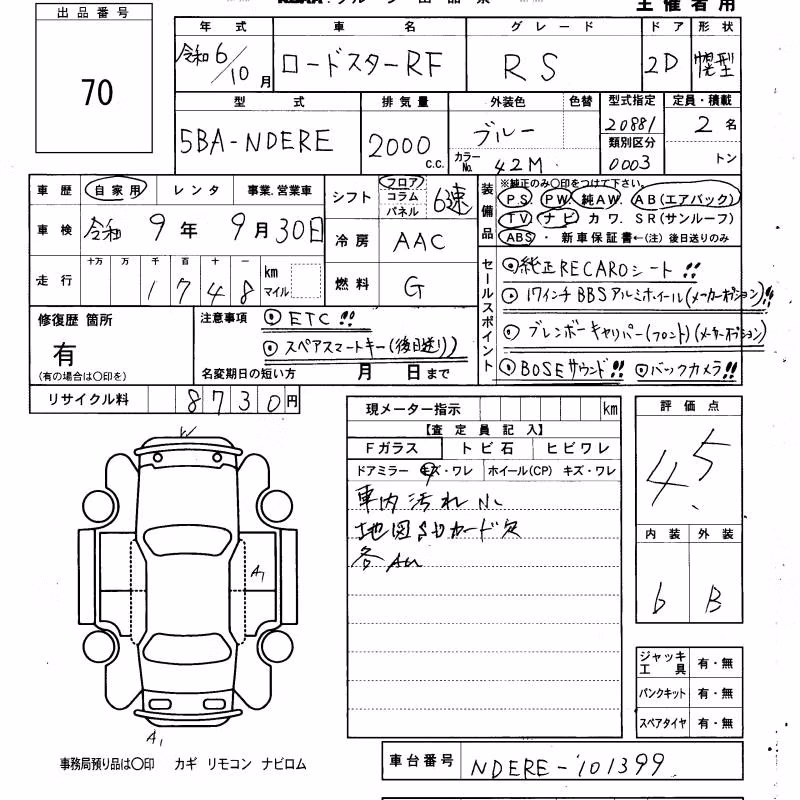 出品番号
70
主催者用
年式 車名 グレード ドア 形状
令和6/10月 ロードスターRF RS 2D 幌型
型式 排気量 外装色 色替 型式指定 定員・積載
5BA-NDERE 2000 C.C. ブルー 20881 2名
カラーNo. 42M 類別区分 0003 トン
車歴 自家用 レンタ 事業.営業車
シフト フロア コラム パネル 6速
装備品 ※純正のみ〇印をつけて下さい。
PS PW 純AW. AB(エアバック)
TV ナビ カワ. SR(サンルーフ)
ABS. 新車保証書←(注) 後日送りのみ
車検 令和 9年 9月30日
冷房 AAC
走行 十万 万 千 百 十 一
1748 km マイル
燃料 G
セールスポイント
純正RECAROシート!!
17インチBBSアルミホイール(メーカーオプション)!!
ブレンボーキャリパー(フロント)(メーカーオプション)
BOSEサウンド!! バックカメラ!!
修復歴 箇所
有
(有の場合は〇印を)
注意事項 ETC!!
スペアスマートキー(後日送り)
名変期日の短い方 月 日まで
リサイクル料 8730円
現メーター指示 km
【査定員記入】
Fガラス トビ石 ヒビワレ
ドアミラー キズ・ワレ ホイール(CP) キズ・ワレ
車内汚れ小
地図SDカード欠
各AU
評価点
4.5
内装 外装
6 B
W
A1
A1
ジャッキ工具 有・無
パンクキット 有・無
スペアタイヤ 有・無
事務局預り品は〇印 カギ リモコン ナビロム
車台番号 NDERE-101399